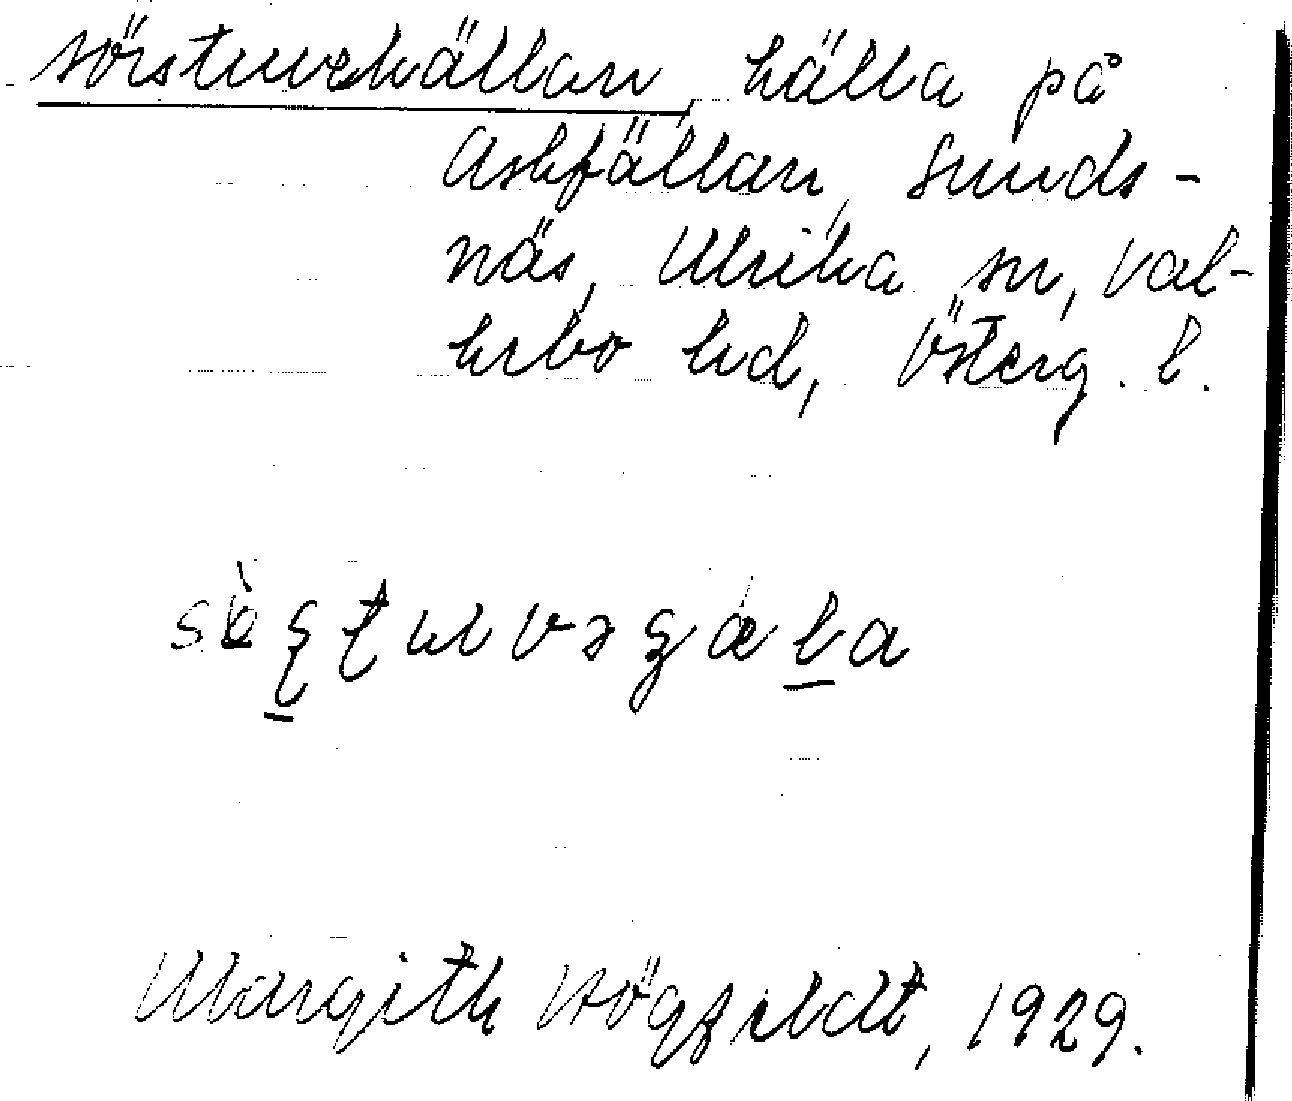 sörstuvekällan, källa på
Askfällan, Sunds-
näs, Ulrika sn, Val-
kebo hd, Österg. l.
Margith Högfeldt, 1929.